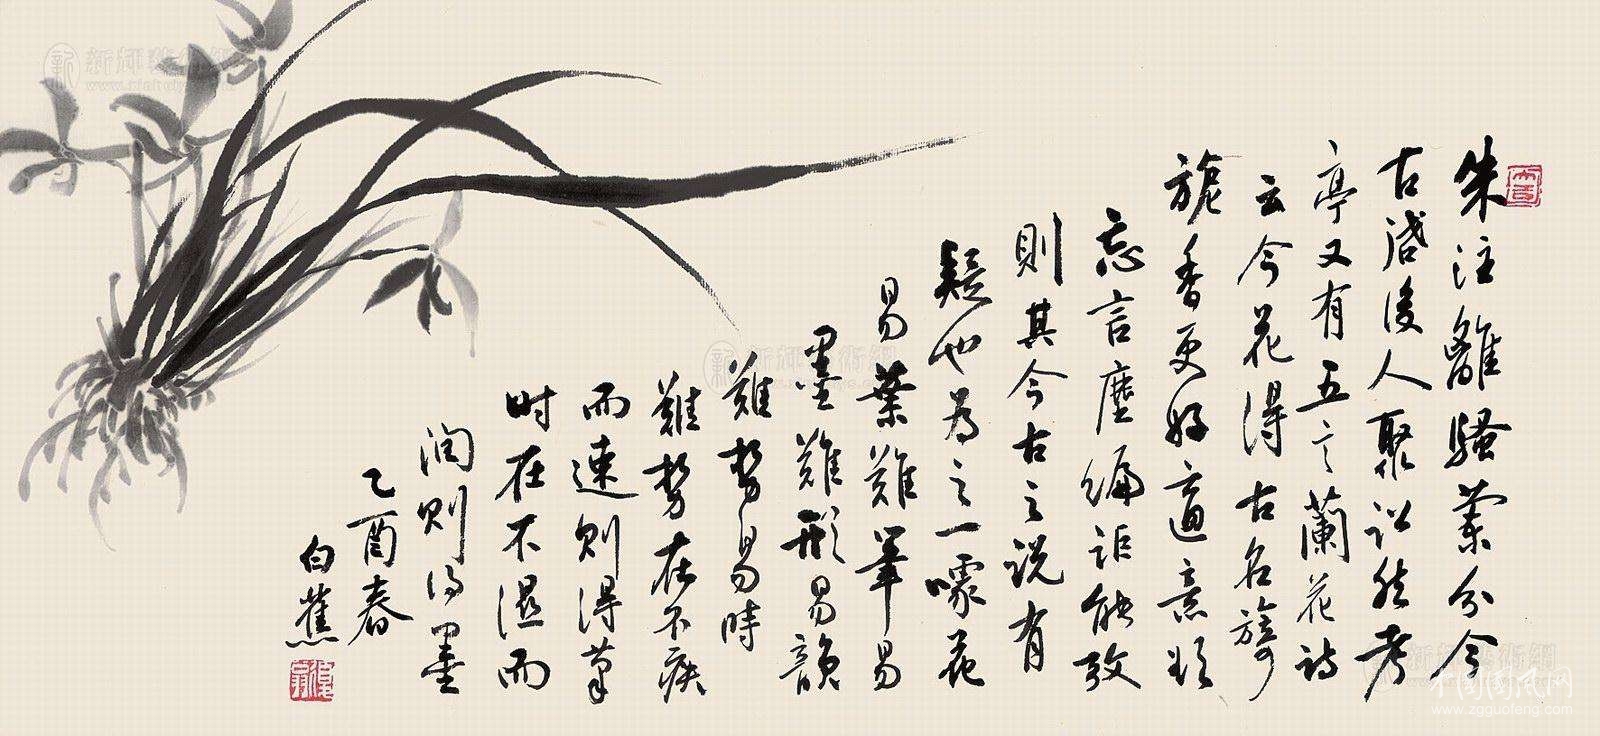 朱注離騷分今
古後人聚訟然考
亭又有五言蘭花詩
云今花得古名旖
旎香更好適意欲
忘言塵編詎能考
則其今古之說有
疑也為之一噱花
易葉難筆易
墨難形易韻
難勢易時
難勢在不疾
而速則得筆
時在不濕而
潤則得墨
乙酉春
白蕉
中国国风网
www.zgguofeng.com